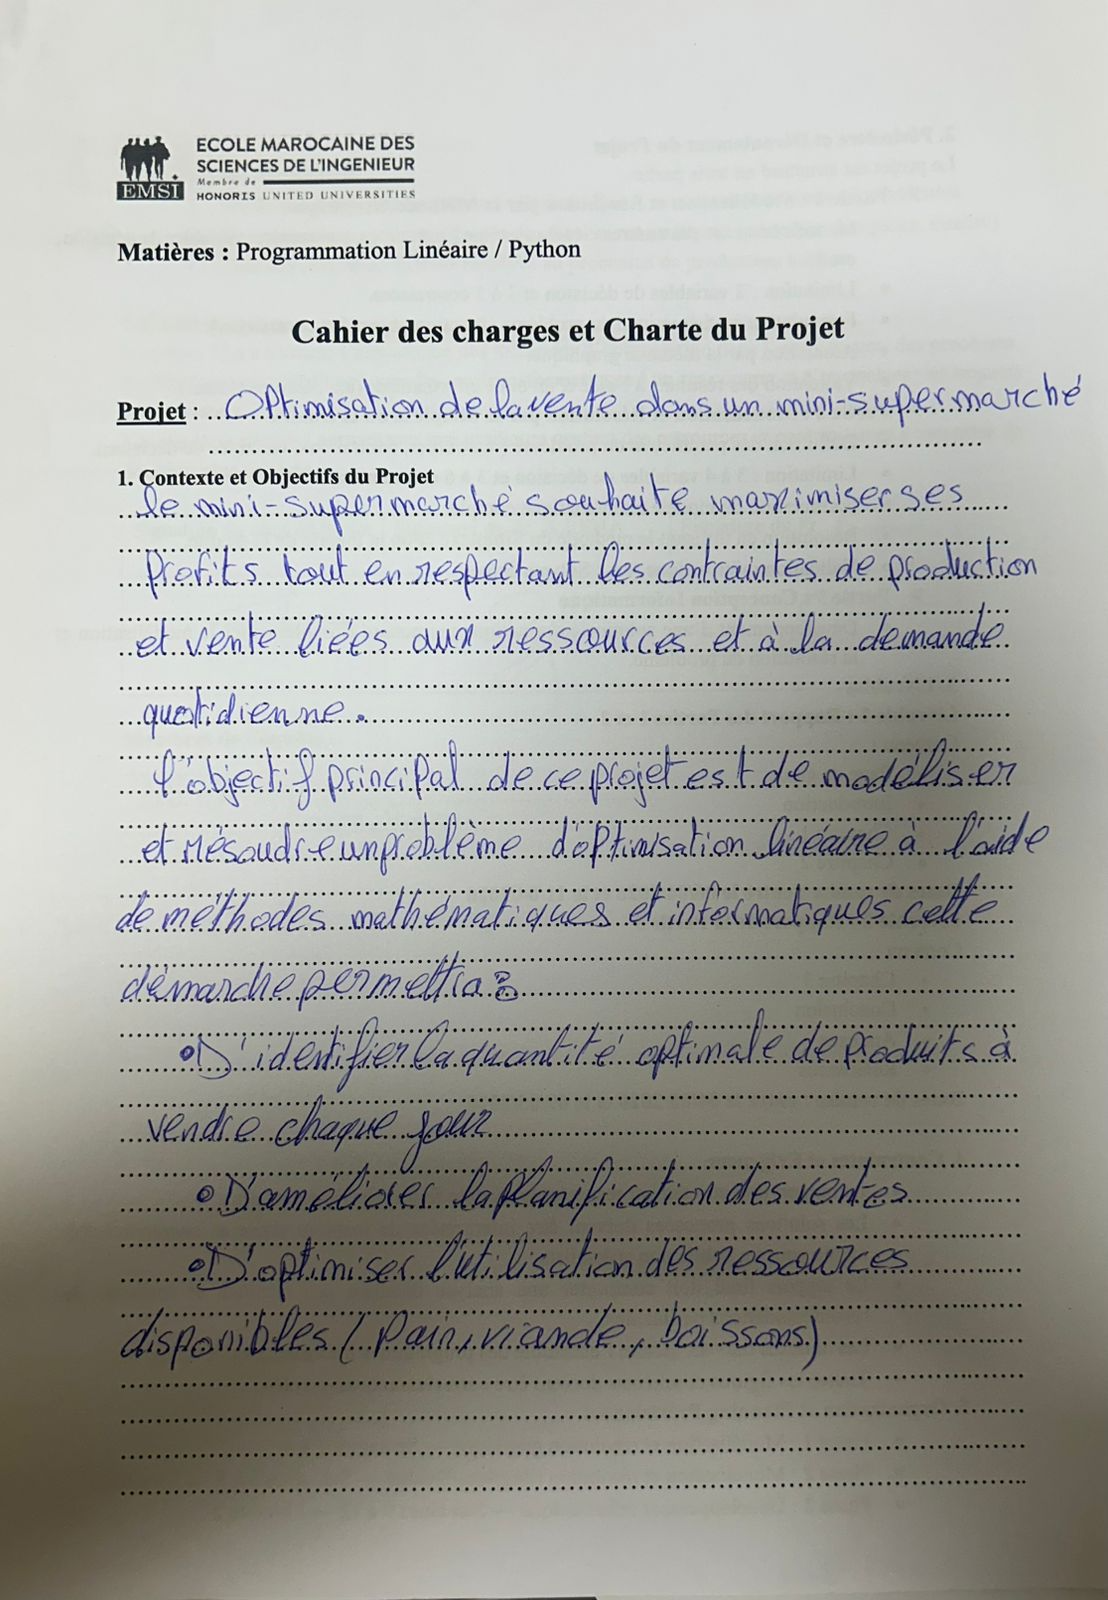 ECOLE MAROCAINE DES
SCIENCES DE L'INGENIEUR
Membre de
HONORIS UNITED UNIVERSITIES
EMSI
Matières : Programmation Linéaire / Python
Cahier des charges et Charte du Projet
Projet : Optimisation de la vente dans un mini-supermarché
1. Contexte et Objectifs du Projet
le mini-supermarché souhaite maximiser ses
profits tout en respectant les contraintes de production
et vente liées aux ressources et à la demande
quotidienne.
l'objectif principal de ce projet est de modéliser
et résoudre un problème d'optimisation linéaire à l'aide
de méthodes mathématiques et informatiques cette
démarche permettra :
• D'identifier la quantité optimale de produits à
vendre chaque jour
• D'améliorer la planification des ventes
• D'optimiser l'utilisation des ressources
disponibles ( Pain, viande, boissons)